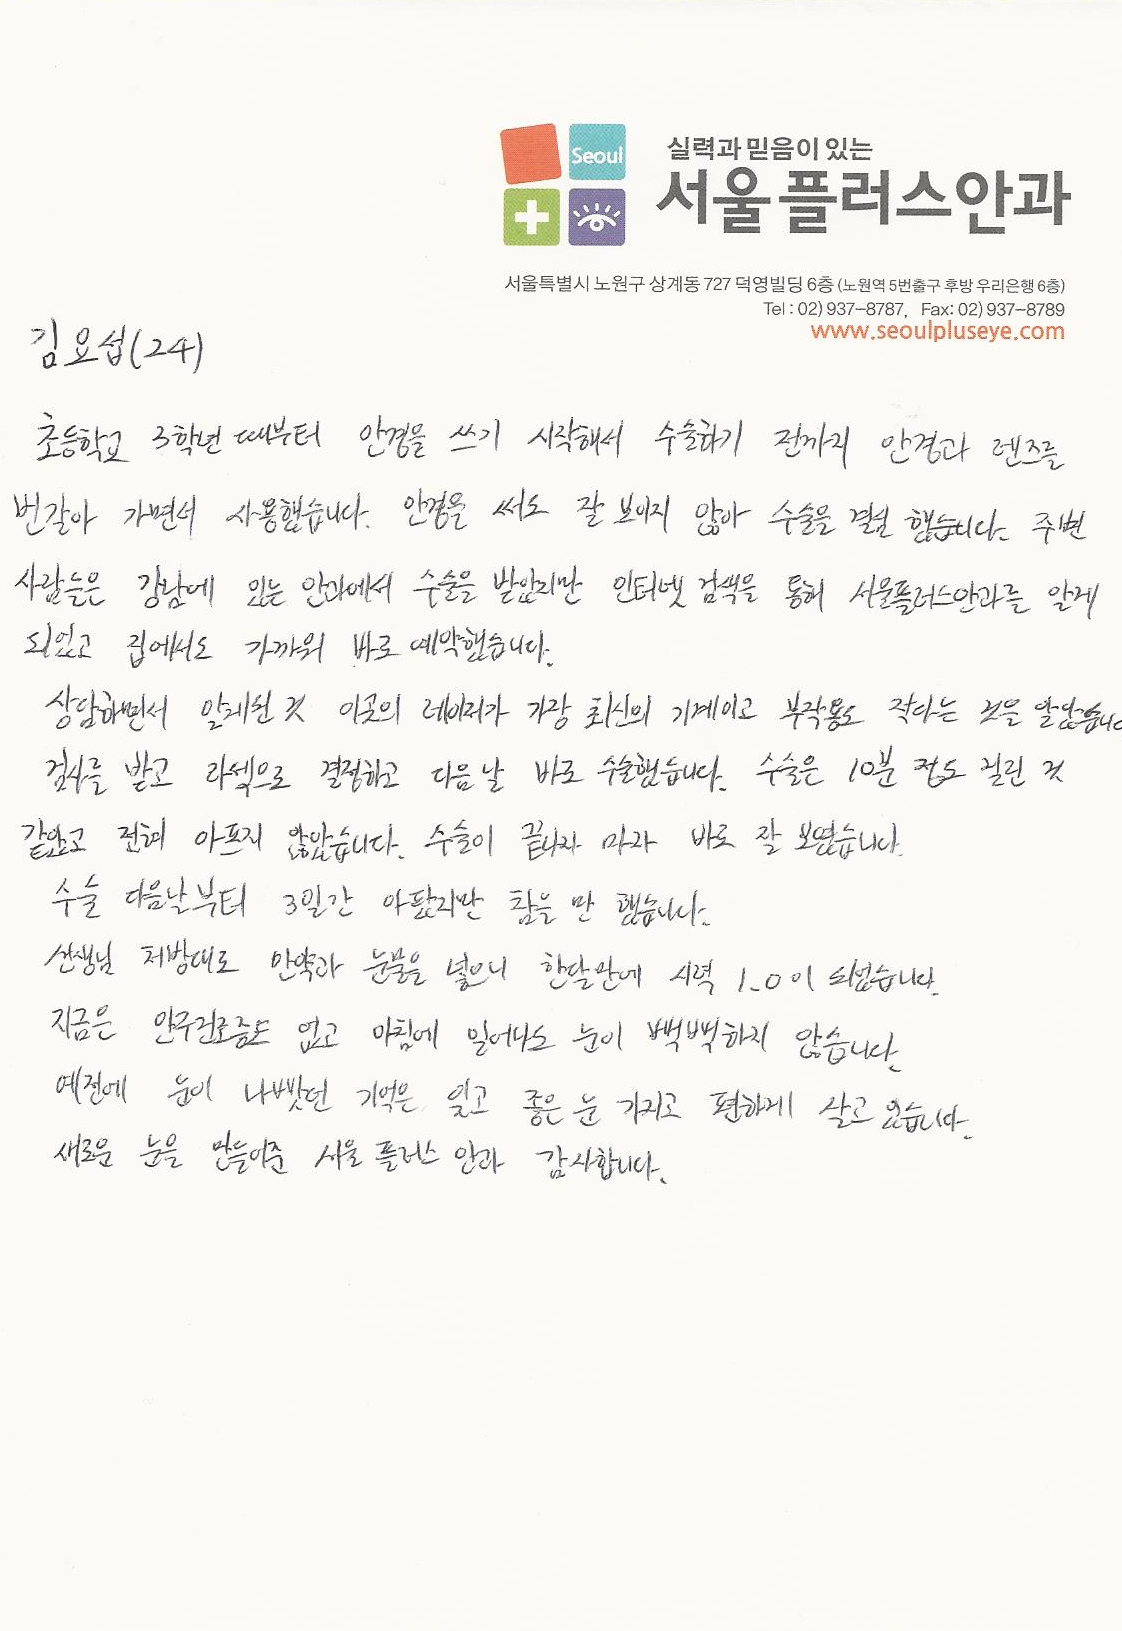 Seoul
실력과 믿음이 있는
서울플러스안과
서울특별시 노원구 상계동 727 덕영빌딩 6층 (노원역 5번출구 후방 우리은행 6층)
Tel : 02) 937-8787, Fax: 02) 937-8789
www.seoulpluseye.com
김요섭(24)
초등학교 3학년 때부터 안경을 쓰기 시작해서 수술하기 전까지 안경과 렌즈를
번갈아 가면서 사용했습니다. 안경을 써도 잘 보이지 않아 수술을 결심 했습니다. 주변
사람들은 강남에 있는 안과에서 수술을 받았지만 인터넷 검색을 통해 서울플러스안과를 알게
되었고 집에서도 가까워 바로 예약했습니다.
상담하면서 알게된 것 이곳의 레이저가 가장 최신의 기계이고 부작용도 작다는 것을 알았습니다
검사를 받고 라섹으로 결정하고 다음날 바로 수술했습니다. 수술은 10분 정도 걸린 것
같았고 전혀 아프지 않았습니다. 수술이 끝나자 마자 바로 잘 보였습니다.
수술 다음날부터 3일간 아팠지만 참을 만 했습니다.
선생님 처방대로 안약과 눈물을 넣으니 한달만에 시력 1.0이 되었습니다.
지금은 안구건조증도 없고 아침에 일어나도 눈이 뻑뻑하지 않습니다.
예전에 눈이 나빴던 기억은 잊고 좋은 눈 가지고 편하게 살고 있습니다.
새로운 눈을 만들어준 서울 플러스 안과 감사합니다.